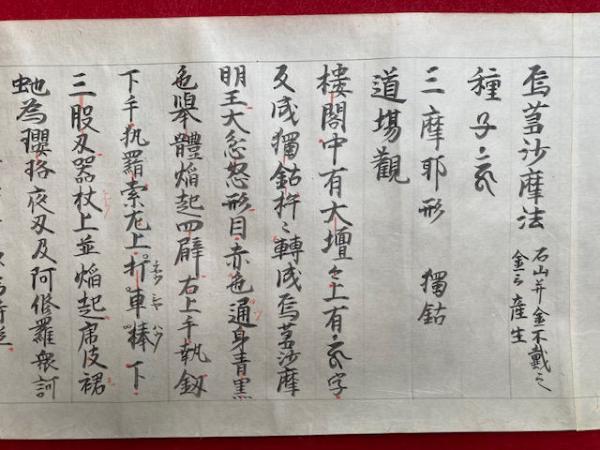 烏蒭沙摩法
石山并金不載之
金云 産生
種子
三摩耶形 獨鈷
道場觀
樓閣中有大壇々上有字
反成獨鈷杵々轉成烏蒭沙摩
明王大忿怒形目赤色通身青黒
色擧體焔起四臂右上手執釼
下手執羅索左上打車棒下
三股叉器杖上並焔起虎皮裙
虵為瓔珞夜叉及阿修羅衆訶